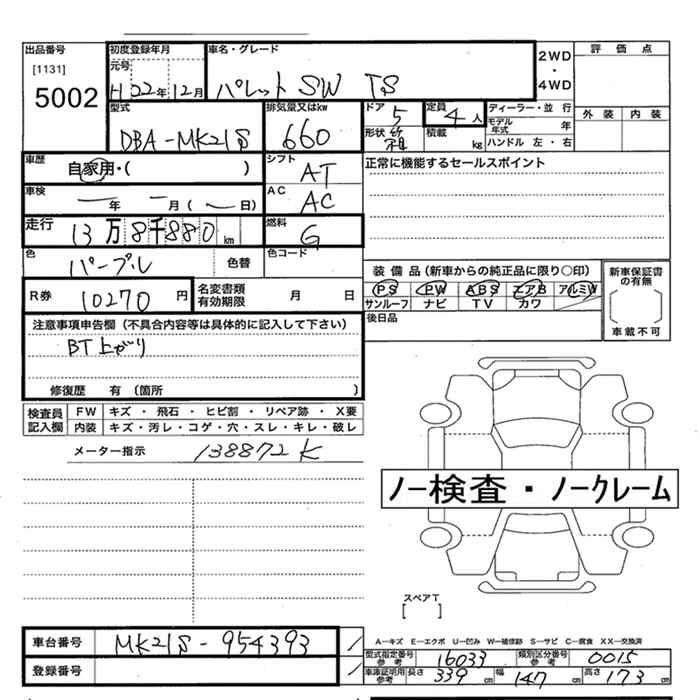 出品番号 初度登録年月 車名・グレード 2WD・4WD 評価点
[1131] 元号
5002 H22年12月 パレット SW TS
外装 内装
型式 排気量又はkw ドア 5 定員 4人 ディーラー・並行
DBA-MK21S 660 形状 積載 kg モデル年式 年
ハンドル 左・右
車歴 自家用・( ) シフト AT 正常に機能するセールスポイント
車検 年 月( 日) AC AC
走行 13万8千880km 燃料 G
色 パープル 色替 色コード
装備品(新車からの純正品に限り○印) 新車保証書の有無
R券 10270円 名変書類有効期限 月 日 PS PW ABS エアB アルミW
サンルーフ ナビ TV カワ
車載不可
注意事項申告欄(不具合内容等は具体的に記入して下さい) 後日品
BT上がり
修復歴 有(箇所 )
検査員記入欄 FW キズ・飛石・ヒビ割・リペア跡・X要
内装 キズ・汚レ・コゲ・穴・スレ・キレ・破レ
メーター指示 138872K
ノー検査・ノークレーム
スペアT
[ ]
車台番号 MK21S-954393
A-キズ E-エクボ U-凹み W-補修跡 S-サビ C-腐食 XX-交換済
型式指定番号参考 16033 類別区分番号参考 0015
登録番号 車庫証明用参考 長さ 339cm 幅 147cm 高さ 173cm